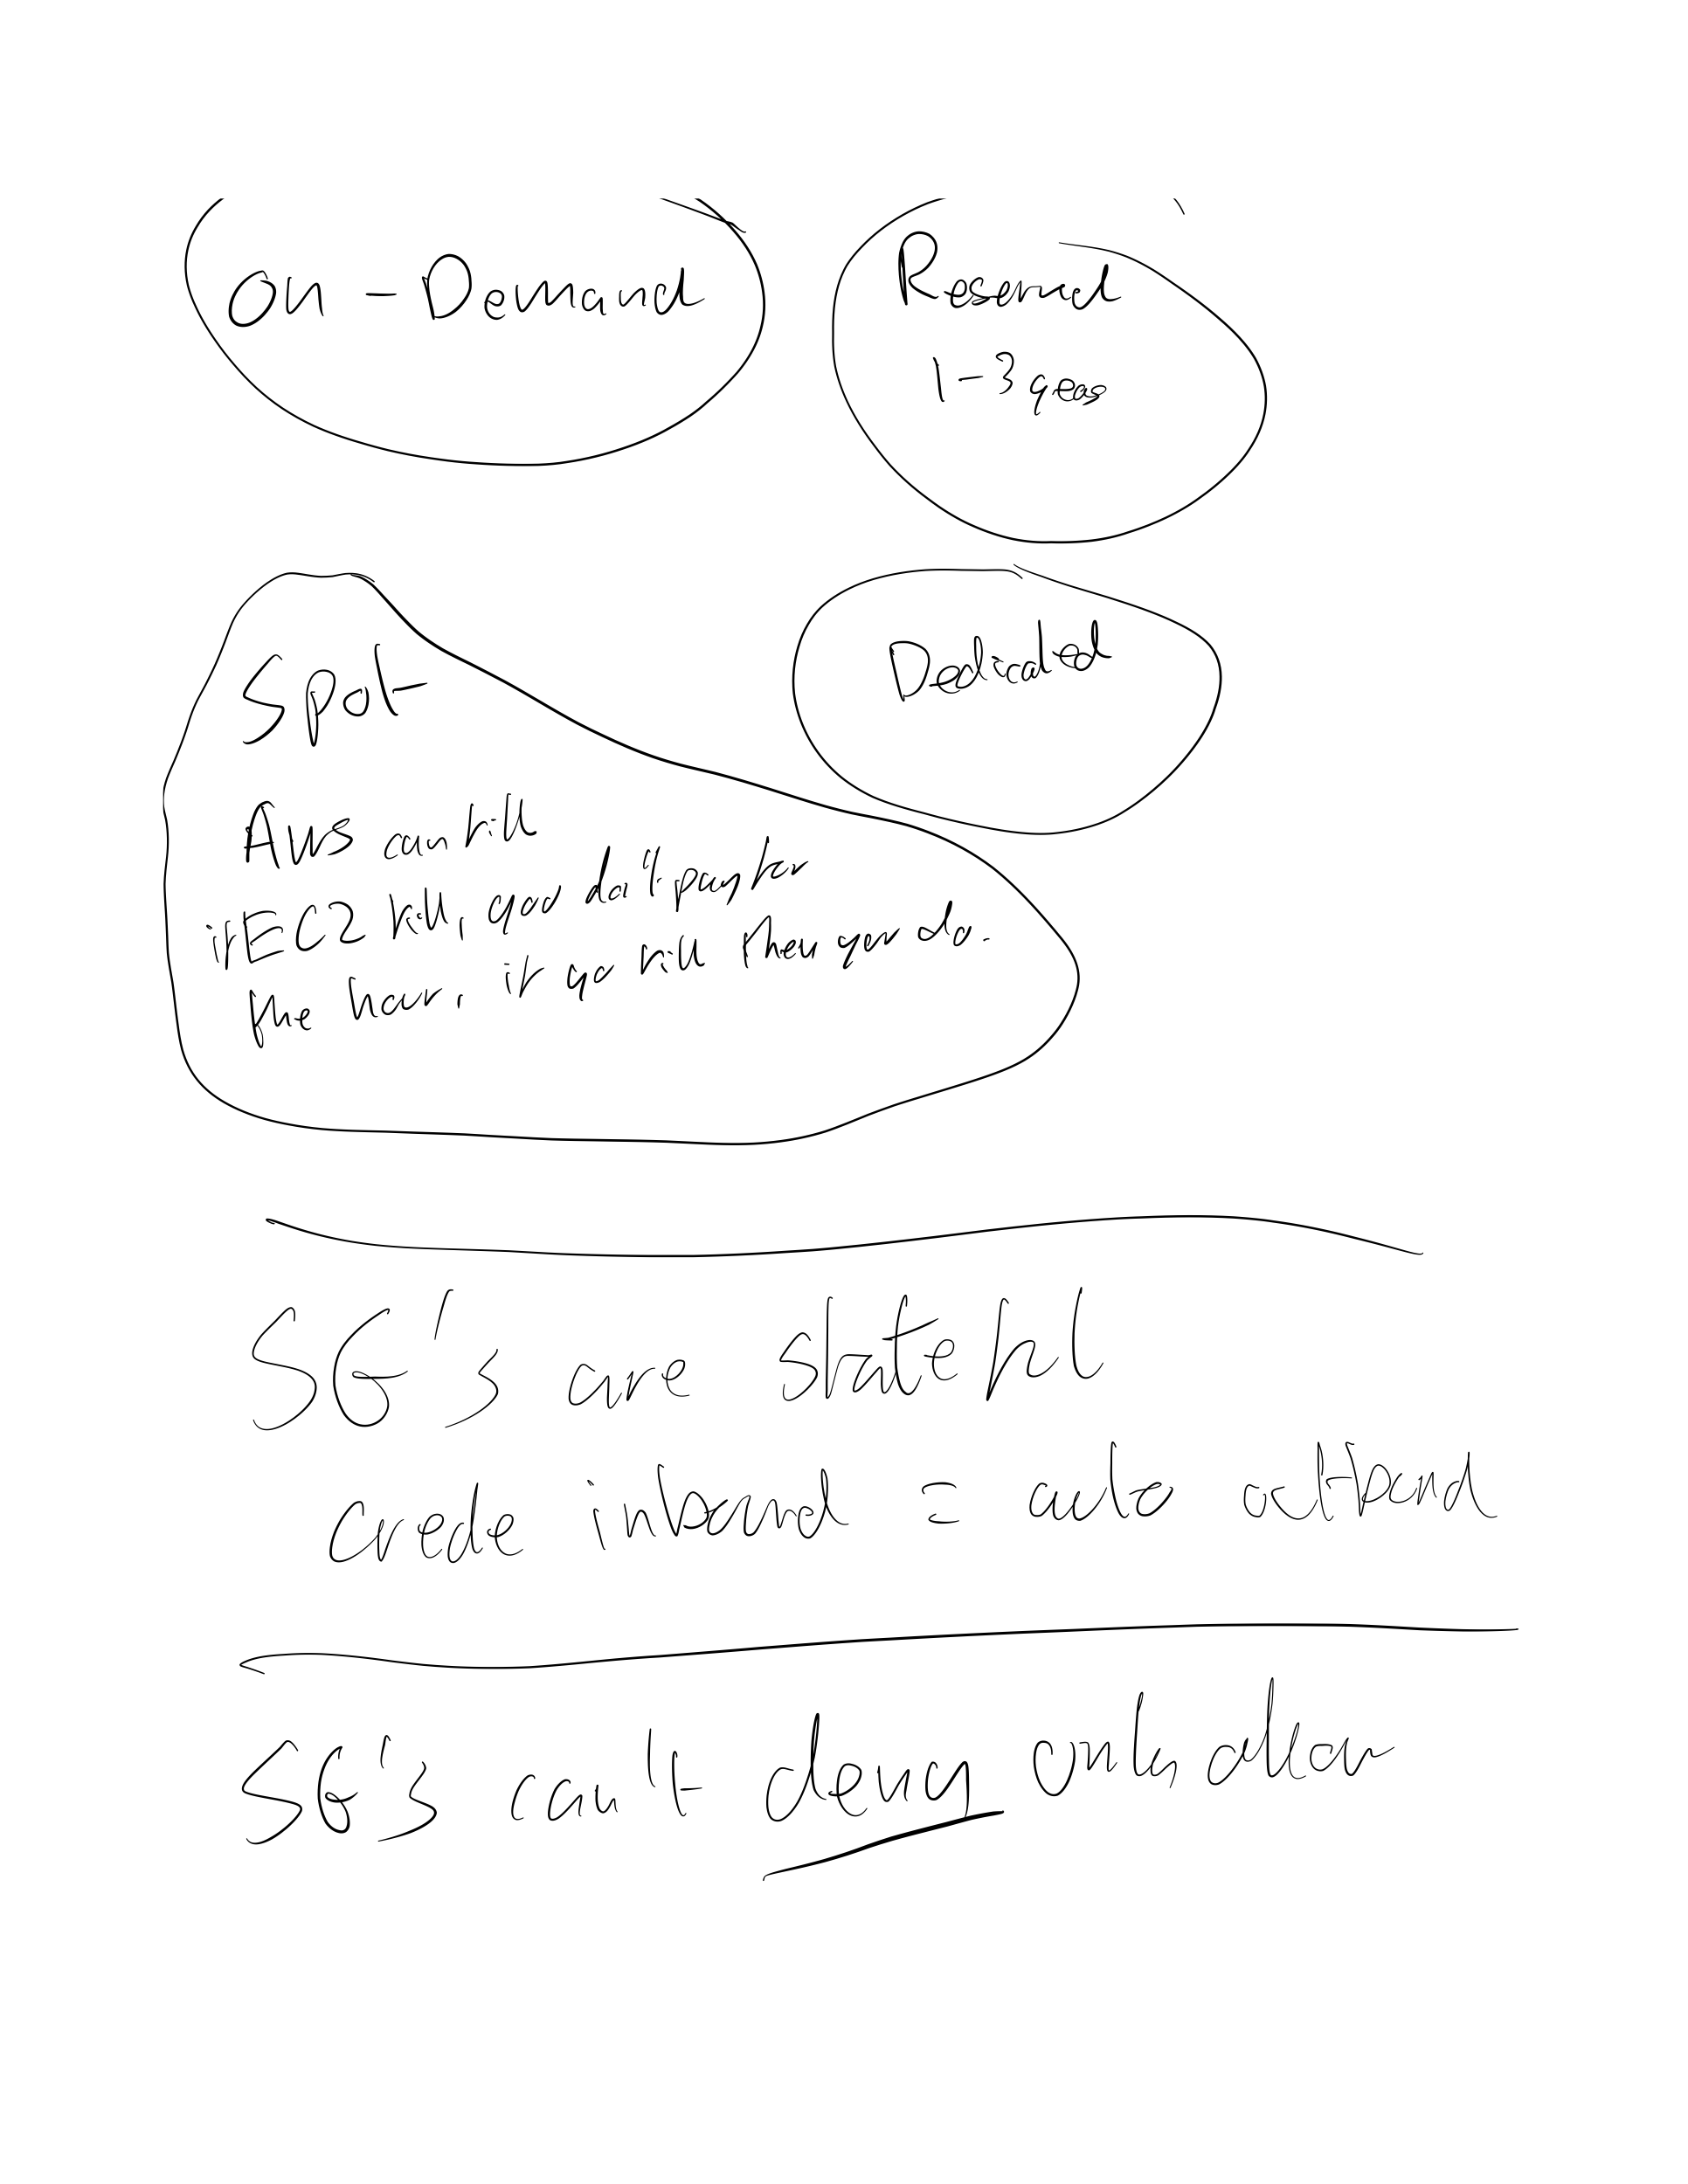 On - Demand
Reserved
1-3 years
Spot
Dedicated
AWS can kill
if EC2 kill, you don't pay for
the hour, if you kill then you do.
SG's are stateful
create inbound = auto outbound
SG's can't deny only allow